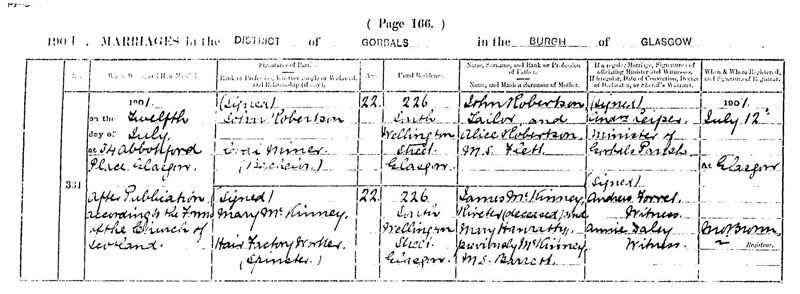 ( Page 166. )
1901. MARRIAGES in the DISTRICT of GORBALS in the BURGH of GLASGOW
No.
When, Where, and How Married.
Signatures of Parties.
Rank or Profession, whether Single or Widowed, and Relationship (if any).
Age.
Usual Residence.
Name, Surname, and Rank or Profession of Father.
Name, and Maiden Surname of Mother.
If a regular Marriage, Signatures of officiating Minister and Witnesses.
If irregular, Date of Conviction, Decree of Declarator, or Sheriff's Warrant.
When & Where Registered, and Signature of Registrar.
331
1901.
on the Twelfth
day of July
at 34 Abbotsford
Place, Glasgow.
After Publication,
according to the Forms
of the Church of
Scotland.
(Signed)
John Robertson
Coal Miner
(Bachelor)
(Signed)
Mary McKinney.
Hair Factory Worker
(Spinster.)
22.
22.
226
South
Wellington
Street
Glasgow
226
South
Wellington
Street
Glasgow
John Robertson,
Tailor, and
Alice Robertson
M.S. Flett
James McKinney,
(deceased) and
Mary Hanratty,
previously McKinney
M.S. Barrett.
(Signed)
Minister of
Gorbals Parish
(Signed)
Andrew Forret
Witness.
Annie Daley
Witness.
1901.
July 12th
At Glasgow
Jno Brown
Registrar.